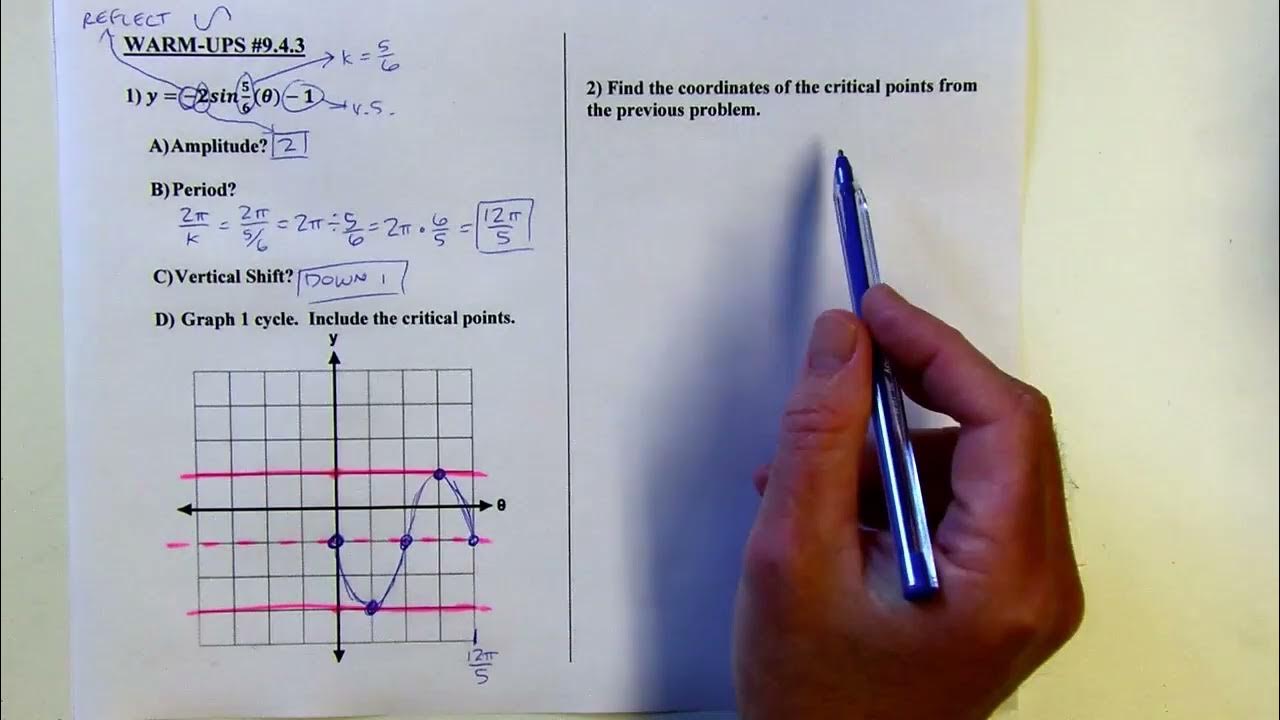 REFLECT
WARM-UPS #9.4.3
k = 5/6
1) y = -2sin 5/6 (θ) - 1
v.s.
A) Amplitude? 2
B) Period?
2π/k = 2π/5/6 = 2π ÷ 5/6 = 2π • 6/5 = 12π/5
C) Vertical Shift? DOWN 1
D) Graph 1 cycle. Include the critical points.
y
θ
12π/5
2) Find the coordinates of the critical points from
the previous problem.